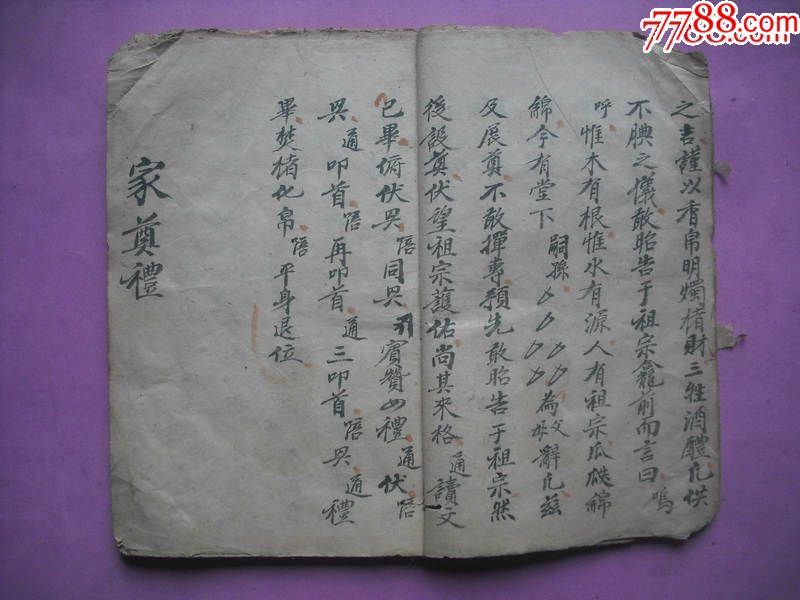 7788.com
之吉謹以香帛明燭楮財三牲酒醴凢供
不腆之儀敢昭告于祖宗龕前而言曰嗚
呼惟木有根惟水有源人有祖宗瓜瓞綿
綿今有堂下嗣孫厶厶厶厶為父母辭凢茲
及展奠不敢擅專預先敢昭告于祖宗然
後設奠伏望祖宗護佑尚其來格通讀文
已畢俯伏興唔同興引賓贊礼通伏唔
興通叩首唔再叩首通三叩首唔興通禮
畢焚楮化帛唔平身退位
家奠禮